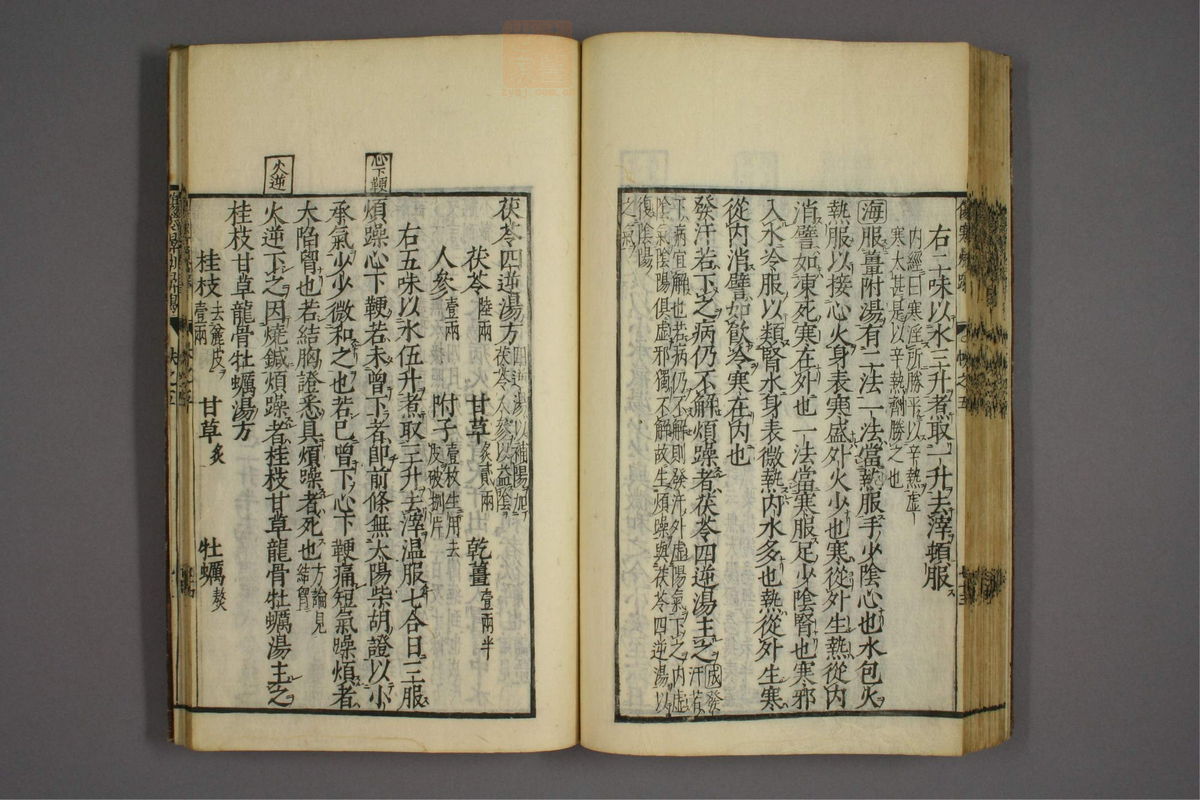 右二味以水三升煮取一升去滓頓服
內經曰寒淫所勝平以辛熱虛
寒大甚是以辛熱劑勝之也
海服薑附湯有二法一法當熱服手少陰心也水包火
熱服以接心火身表寒盛外火少也寒從外生熱從內
消譬如凍死寒在外也一法當寒服足少陰腎也寒邪
入水冷服以類腎水身表微熱內水多也熱從外生寒
從內消譬如飲冷寒在內也
發汗若下之病仍不解煩躁者茯苓四逆湯主之
成發汗若
下病宜解也若病仍不解則發汗外虛陽氣下之內虛
陰氣陰陽俱虛邪獨不解故生煩躁與茯苓四逆湯以
復陰陽
之氣
茯苓四逆湯方
四逆湯以補陽加
茯苓人參以益陰
茯苓陸兩 甘草炙貳兩 乾薑壹兩半
人參壹兩 附子壹枚生用去皮破捌片
右五味以水伍升煮取三升去滓温服七合日三服
心下鞕
煩躁心下鞕若未曾下者即前條無太陽柴胡證以小
承氣少少微和之也若已曾下心下鞕痛短氣躁煩者
大陷胷也若結胸證悉具煩躁者死也
方論見
結胷
火逆
火逆下之因燒鍼煩躁者桂枝甘草龍骨牡蠣湯主之
桂枝甘草龍骨牡蠣湯方
桂枝去麁皮壹兩 甘草炙 牡蠣熬